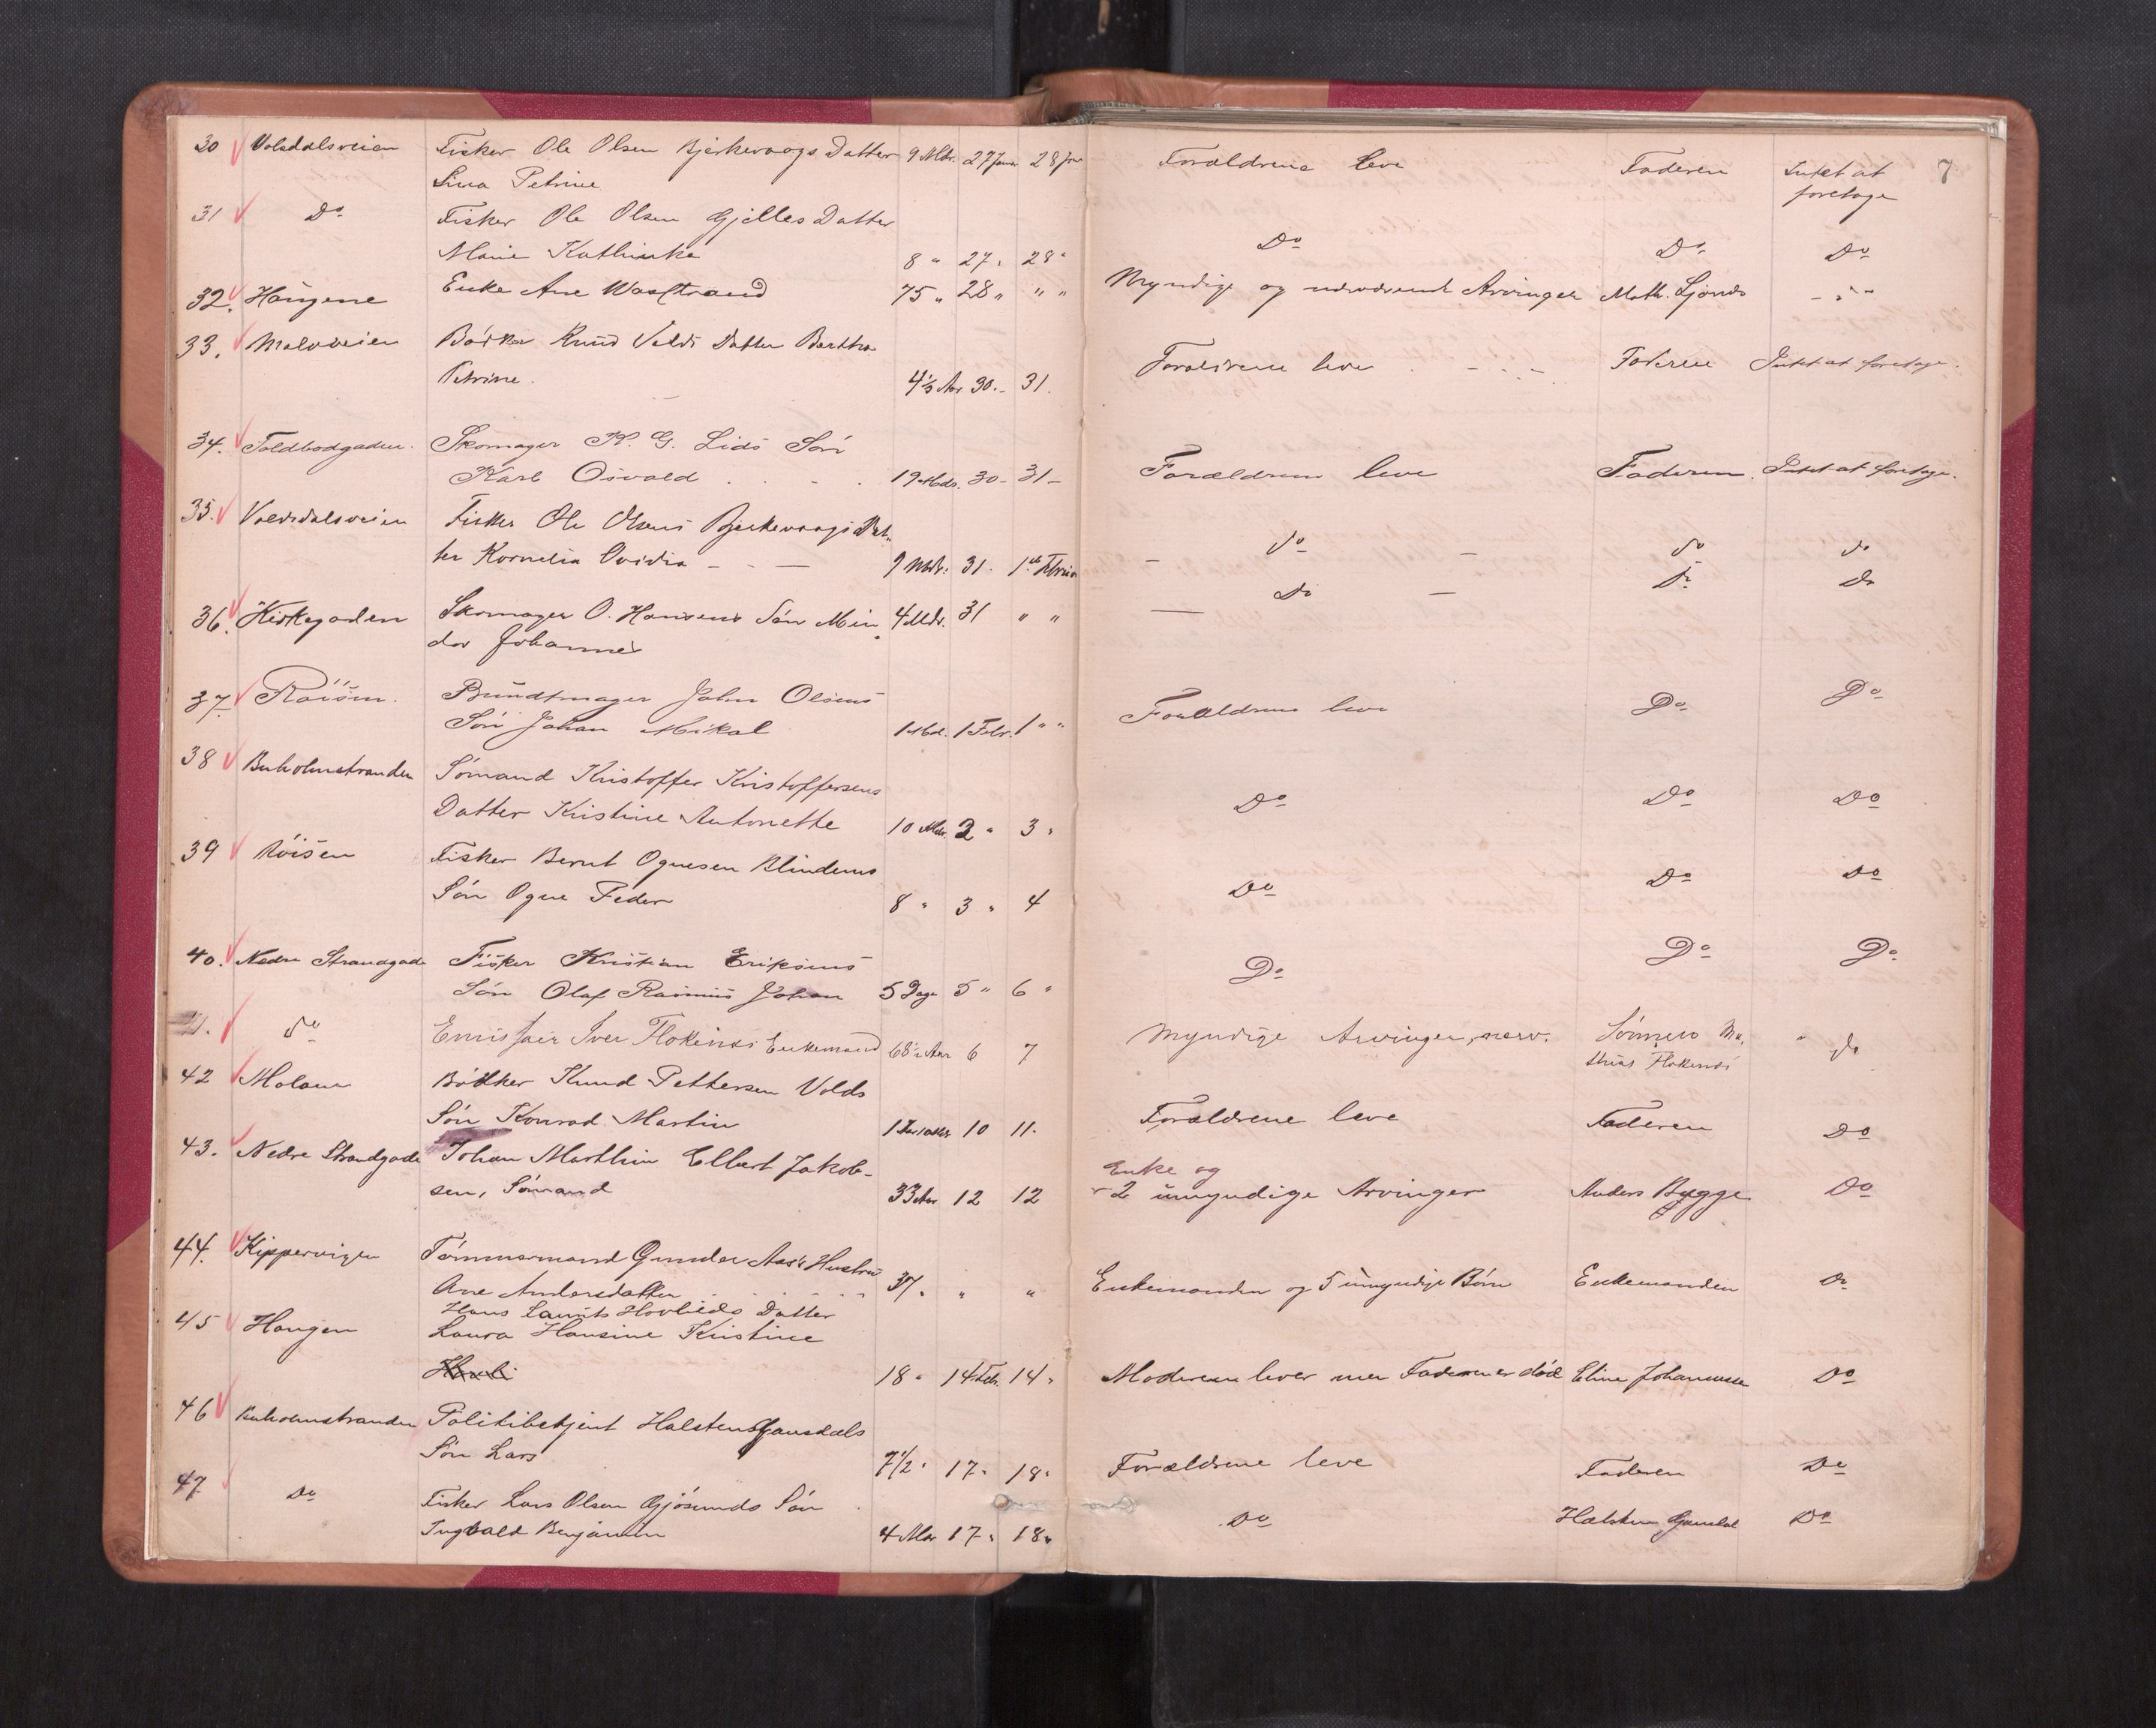 30 Volsdalsveien Fisker Ole Olsen Bjerkevaags Datter 9 Mdr. 27 Januar 28 Jan Forældrene leve Faderen Intet at 7
Lina Petrine foretage
31 Do Fisker Ole Olsen Gjelles Datter
Marie Kathinka 8 " 27 " 28 " Do Do Do
32. Haugene Enke Ane 75 " 28 " " " Myndige og nærværende Arvinger Math. - " -
33. Moloveien Bødker Knud Volds Datter Bertha
Petrine. 4½ Aar 30. - 31. Forældrene leve Faderen Intet at foretage.
34. Toldbodgaden. Skomager K. G. Lids Søn
Karl Osvald 19 Mdr. 30 - 31 - Forældrene leve Faderen. Intet at foretage.
35. Volsdalsveien Fisker Ole Olsens Bjerkevaags Dat-
ter Kornelia Ovidia - - - 9 Mdr. 31. 1ste Februar - do - do do
36. Kirkegaden Skomager O. Hansens Søn Min 4 Mdr. 31 " " - Do - Do Do
dor Johannes
37. Røisen. Bundtmager John Olsens
Søn Johan Mikal 1 Md. 1 Febr. 1 " " Forældrene leve Do Do
38 Buholmstranden Sømand Kristoffer Kristoffersens
Datter Kristine Antonette 10 Mdr. 2 " 3 " Do Do Do
39 Røisen Fisker Bernt Ognesen Blindems
Søn Ogne Peder 8 " 3 " 4 Do Do Do
40. Nedre Strandgade Fisker Kristian Eriksens
Søn Olaf Rasmus Johan 5 Dage 5 " 6 " Do Do Do
41. do Emissær Iver Flokenes Enkemand 68½ Aar 6 7 Myndige Arvinger, nærv. Sønnen Ma- " do
thias Flokenes
42 Moloen Bødker Knud Pettersen Volds
Søn Konrad Martin 1 Aar 10 Mdr 10 11. Forældrene leve Faderen Do
43. Nedre Strandgade Johan Marthin Elbert Jakob- Enke og
sen, Sømand 33 Aar 12 12 2 umyndige Arvinger Anders Bygge Do
44. Kippervigen Tømmermand Gunder Aas's Hustru
Ane Andersdatter 37 " " " Enkemanden og 5 umyndige Børn Enkemanden Do
Hans Laurits Datter
45 Haugen Laura Hansine Kristine
18 " 14 Feb. 14 " Moderen lever men Faderen er død Eline Johannessen Do
46 Buholmstranden Politibetjent Halsten Gausdals
Søn Lars 7½ " 17 " 18 " Forældrene leve Faderen Do
47 Do Fisker Lars Olsen Gjøsunds Søn
Ingvald Benjamin 4 Mdr 17 " 18 " Do Halsten Gausdal Do